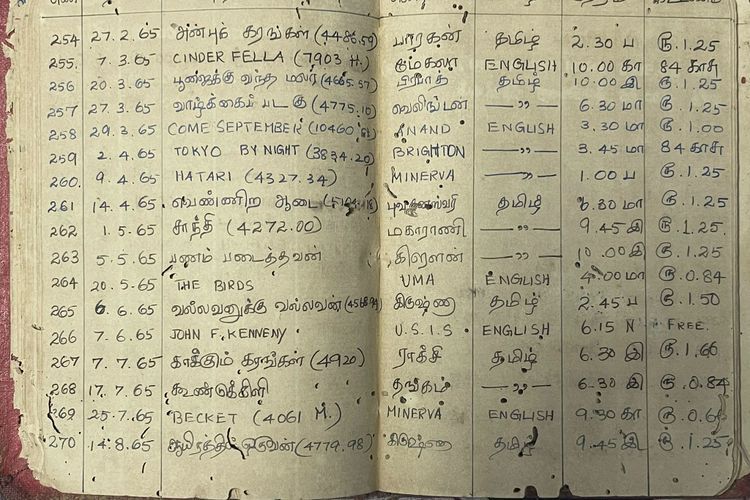 254 27.2.65 அன்புக் கரங்கள் (4486.59) பாரகன் தமிழ் 2.30 ப ரூ.1.25
255. 7.3.65 CINDER FELLA (7903 H.) ENGLISH 10.00 கா 84 காசு
256 20.3.65 பூஜைக்கு வந்த மலர் (4665.57) பிரபாத் தமிழ் 10.00 இ ரூ.1.25
257 27.3.65 வாழ்க்கைப் படகு (4775.10) வெலிங்டன் —"— 6.30 மா ரூ.1.25
258 29.3.65 COME SEPTEMBER (10460 ANAND ENGLISH 3.30 மா ரூ.1.00
259 2.4.65 TOKYO BY NIGHT (3834.20) BRIGHTON —"— 3.45 மா 84 காசு
260. 9.4.65 HATARI (4327.34) MINERVA —"— 1.00 ப ரூ.1.25
261 14.4.65 வெண்ணிற ஆடை புவனேஸ்வரி தமிழ் 6.30 மா ரூ.1.25
262 1.5.65 சாந்தி (4272.00) மகாராணி —"— 9.45 இ ரூ.1.25.
263 5.5.65 பணம் படைத்தவன் கிரௌன் —"— 10.00 இ ரூ.1.25
264 20.5.65 THE BIRDS UMA ENGLISH 4.00 மா ரூ.0.84
265 6.6.65 வல்லவனுக்கு வல்லவன் கிருஷ்ணா தமிழ் 2.45 ப ரூ.1.50
266 7.6.65 JOHN F. KENNENY U.S.I.S ENGLISH 6.15 N FREE.
267 7.7.65 காக்கும் கரங்கள் ராக்சி தமிழ் 6.30 இ ரூ.1.66
268 17.7.65 கூண்டுக்கிளி தங்கம் —"— 6.30 இ ரூ.0.84
269 25.7.65 BECKET (4061 M.) MINERVA ENGLISH 9.30 கா ரூ.0.64
270 14.8.65 ஆயிரத்தில் ஒருவன் (4779.98) கிருஷ்ணா தமிழ் 9.45 இ ரூ.1.25